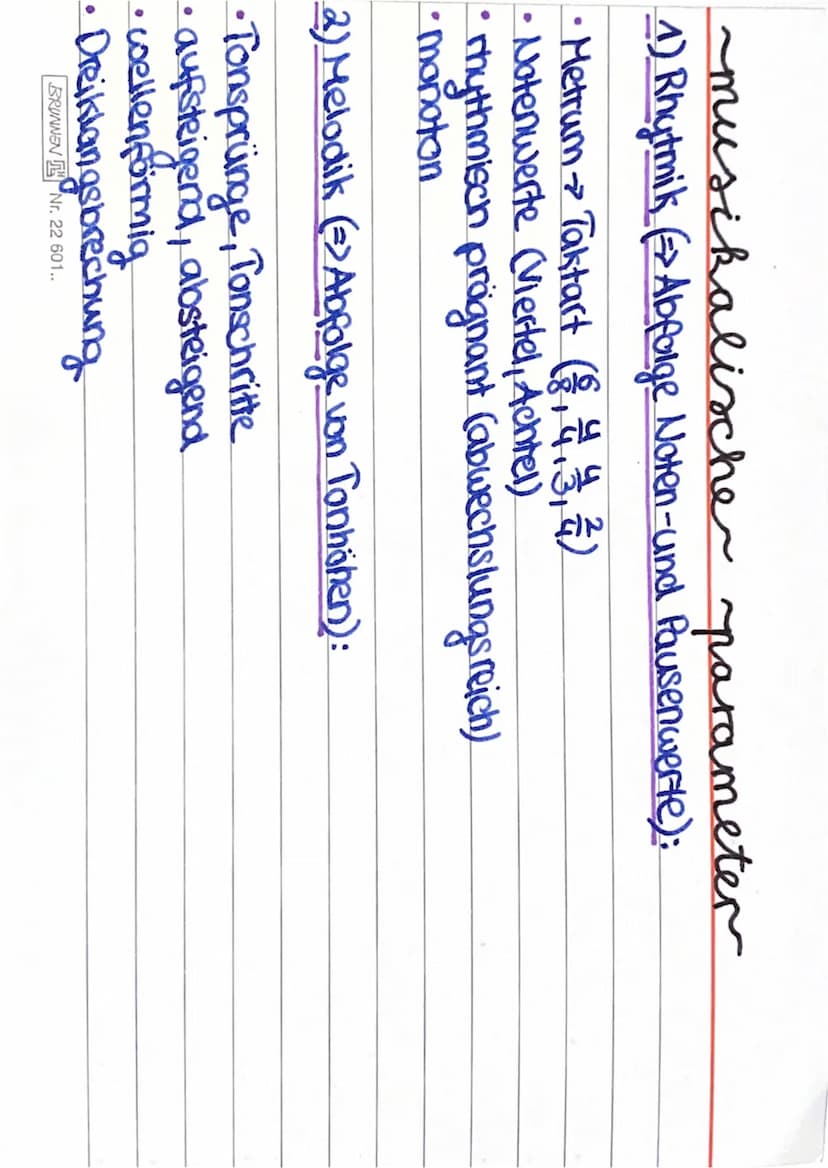 ~musikalische~ ~parameter~
1) Rhytmik (=> Abfolge Noten-und Pausenwerte):
• Metrum → Taktart (6/8, 4/4, 4/3, 2/4)
• Notenwerte (Viertel, Achtel)
• rhythmisch prägnant (abwechslungsreich)
• monoton
2) Melodik (=> Abfolge von Tonhöhen):
• Tonsprünge, Tonschritte
• aufsteigend, absteigend
• wellenförmig
• Dreiklangsbrechung
BRUNNEN Nr. 22 601..